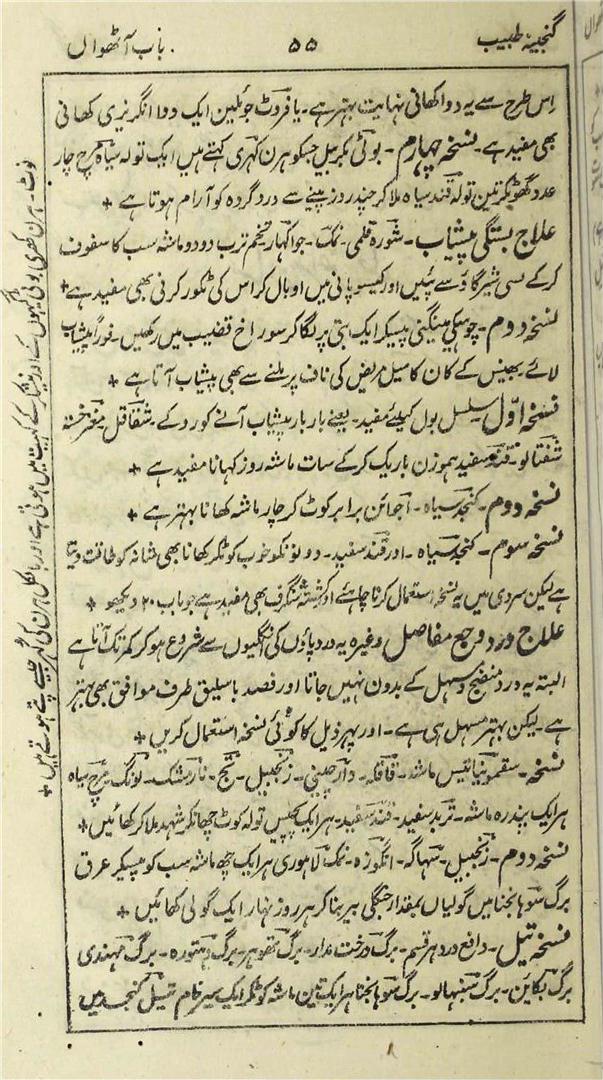 گنجینۂ طبیب ۵۵ باب آٹھواں
اِس طرح سے یہ دوا کھانی نہایت بہتر ہے۔ یا فروٹ جوئلین ایک دوا انگریزی کھانی
بھی مفید ہے۔ نسخہ چہارم۔ بوٹی بیل جسکو ہرن کہری کہتے ہیں ایک تولہ سیاہ مرچ چار
عدد گھوٹکر تین تولہ قند سیاہ ملا کر چند روز پینے سے درد گردہ کو آرام ہوتا ہے +
علاج بستگی پیشاب۔ شورہ قلمی۔ نمک۔ جواکہار تخم ترب دو دو ماشہ سب کا سفوف
کرکے لسی شیر گاؤ سے پئیں اور کیسو پانی میں اوبال کر اس کی ٹکور کرنی بھی مفید ہے +
نسخہ دوم۔ چوہیکی مینگنی پیسکر ایک بتی پر لگا کر سوراخ قضیب میں رکھیں۔ فوراً پیشاب
لائے بھینس کے کان کا میل مریض کی ناف پر ملنے سے بھی پیشاب آتا ہے +
نسخہ اوّل سلسل بول کیلئے مفید۔ یعنے بار بار پیشاب آنے کو روکے۔ شقاقل مغز خستہ
شفتالو۔ قند سفید ہموزن باریک کرکے سات ماشہ روز کہانا مفید ہے +
نسخہ دوم۔ کنجد سیاہ۔ اجوائن برابر کوٹ کر چار ماشہ کھانا بہتر ہے +
نسخہ سوم۔ کنجد سیاہ۔ اور قند سفید۔ دونونکو خوب کوٹکر کھانا بھی مثانہ کو طاقت دیتا
ہے لیکن سردی میں یہ نسخہ استعمال کرنا چاہئے اور کشتہ شنگرف بھی مفید ہے جو باب ۲۰ دیکھو +
علاج درد وجع مفاصل وغیرہ یہ درد پاؤں کی انگلیوں سے شروع ہو کر کمر تک آتا ہے
البتہ یہ درد منضج و مسہل کے بدون نہیں جاتا اور فصد باسلیق طرف موافق بھی بہتر
ہے۔ لیکن بہتر مسہل ہی ہے۔ اور پہر ذیل کا کوئی نسخہ استعمال کریں +
نسخہ۔ سقمونیا بیس ماشہ۔ قاقلہ۔ دارچینی۔ زنجبیل۔ نارمشک۔ لونگ۔ مرچ سیاہ
ہر ایک پندرہ ماشہ۔ تربد سفید۔ قند سفید۔ ہر ایک پچیس تولہ کوٹ چھانکر شہد ملا کر کھائیں +
نسخہ دوم۔ زنجبیل۔ سہاگہ۔ انگوزہ۔ نمک لاہوری ہر ایک چھ ماشہ سب کو پیسکر عرق
برگ سوہانجنا میں گولیاں بمقدار جنگلی بیر بنا کر ہر روز نہار ایک گولی کھائیں +
نسخہ تیل۔ دافع درد ہر قسم۔ برگ درخت مدار۔ برگ تھوہر۔ برگ دہتورہ۔ برگ مہندی
برگ بکائن۔ برگ سنبہالو۔ برگ سوہانجنا ہر ایک تین ماشہ کوٹکر ایک سیر خام تیل کنجد میں
نوٹ۔ ہرن کھری بوٹی گیہوں کے اور نیشکر کے کھیت میں ہوتی ہے اور بالکل ہرن کی کھر جیسے پتے ہوتے ہیں +